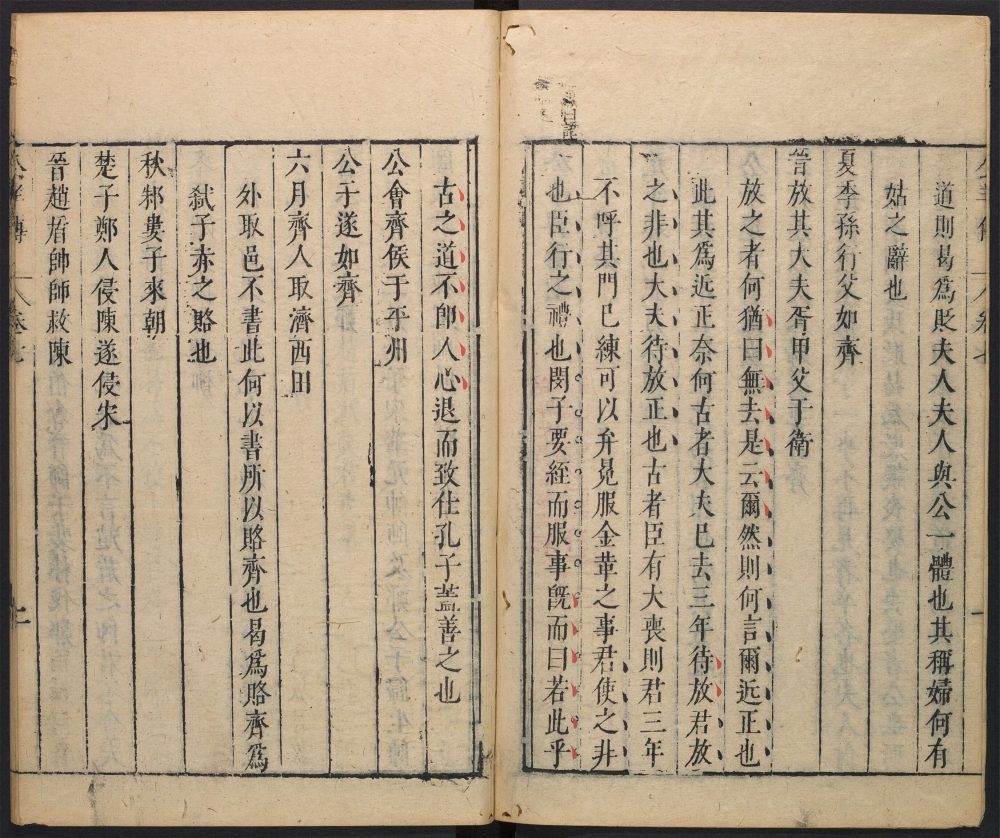 道則曷爲貶夫人夫人與公一體也其稱婦何有
姑之辭也
夏季孫行父如齊
晉放其大夫胥甲父于衛
放之者何猶曰無去是云爾然則何言爾近正也
此其爲近正奈何古者大夫已去三年待放君放
之非也大夫待放正也古者臣有大喪則君三年
不呼其門已練可以弁冕服金革之事君使之非
也臣行之禮也閔子要絰而服事旣而曰若此乎
古之道不卽人心退而致仕孔子蓋善之也
公會齊侯于平州
公子遂如齊
六月齊人取濟西田
外取邑不書此何以書所以賂齊也曷爲賂齊爲
弑子赤之賂也
秋邾婁子來朝
楚子鄭人侵陳遂侵宋
晉趙盾帥師救陳